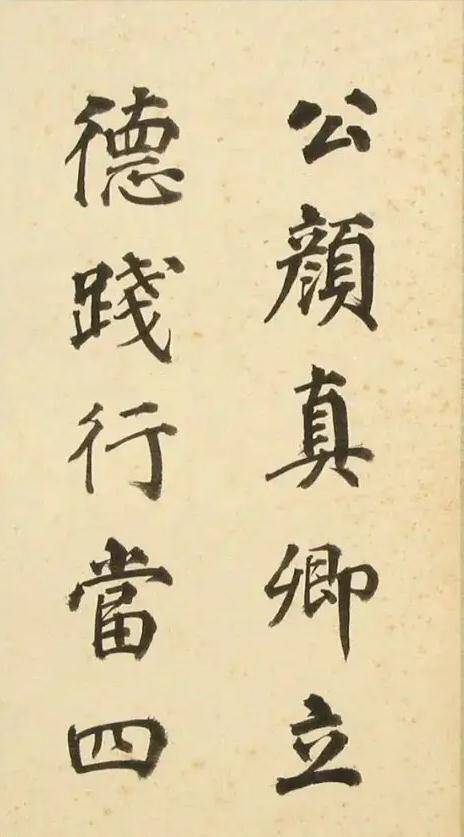 公顔真卿立
德踐行當四